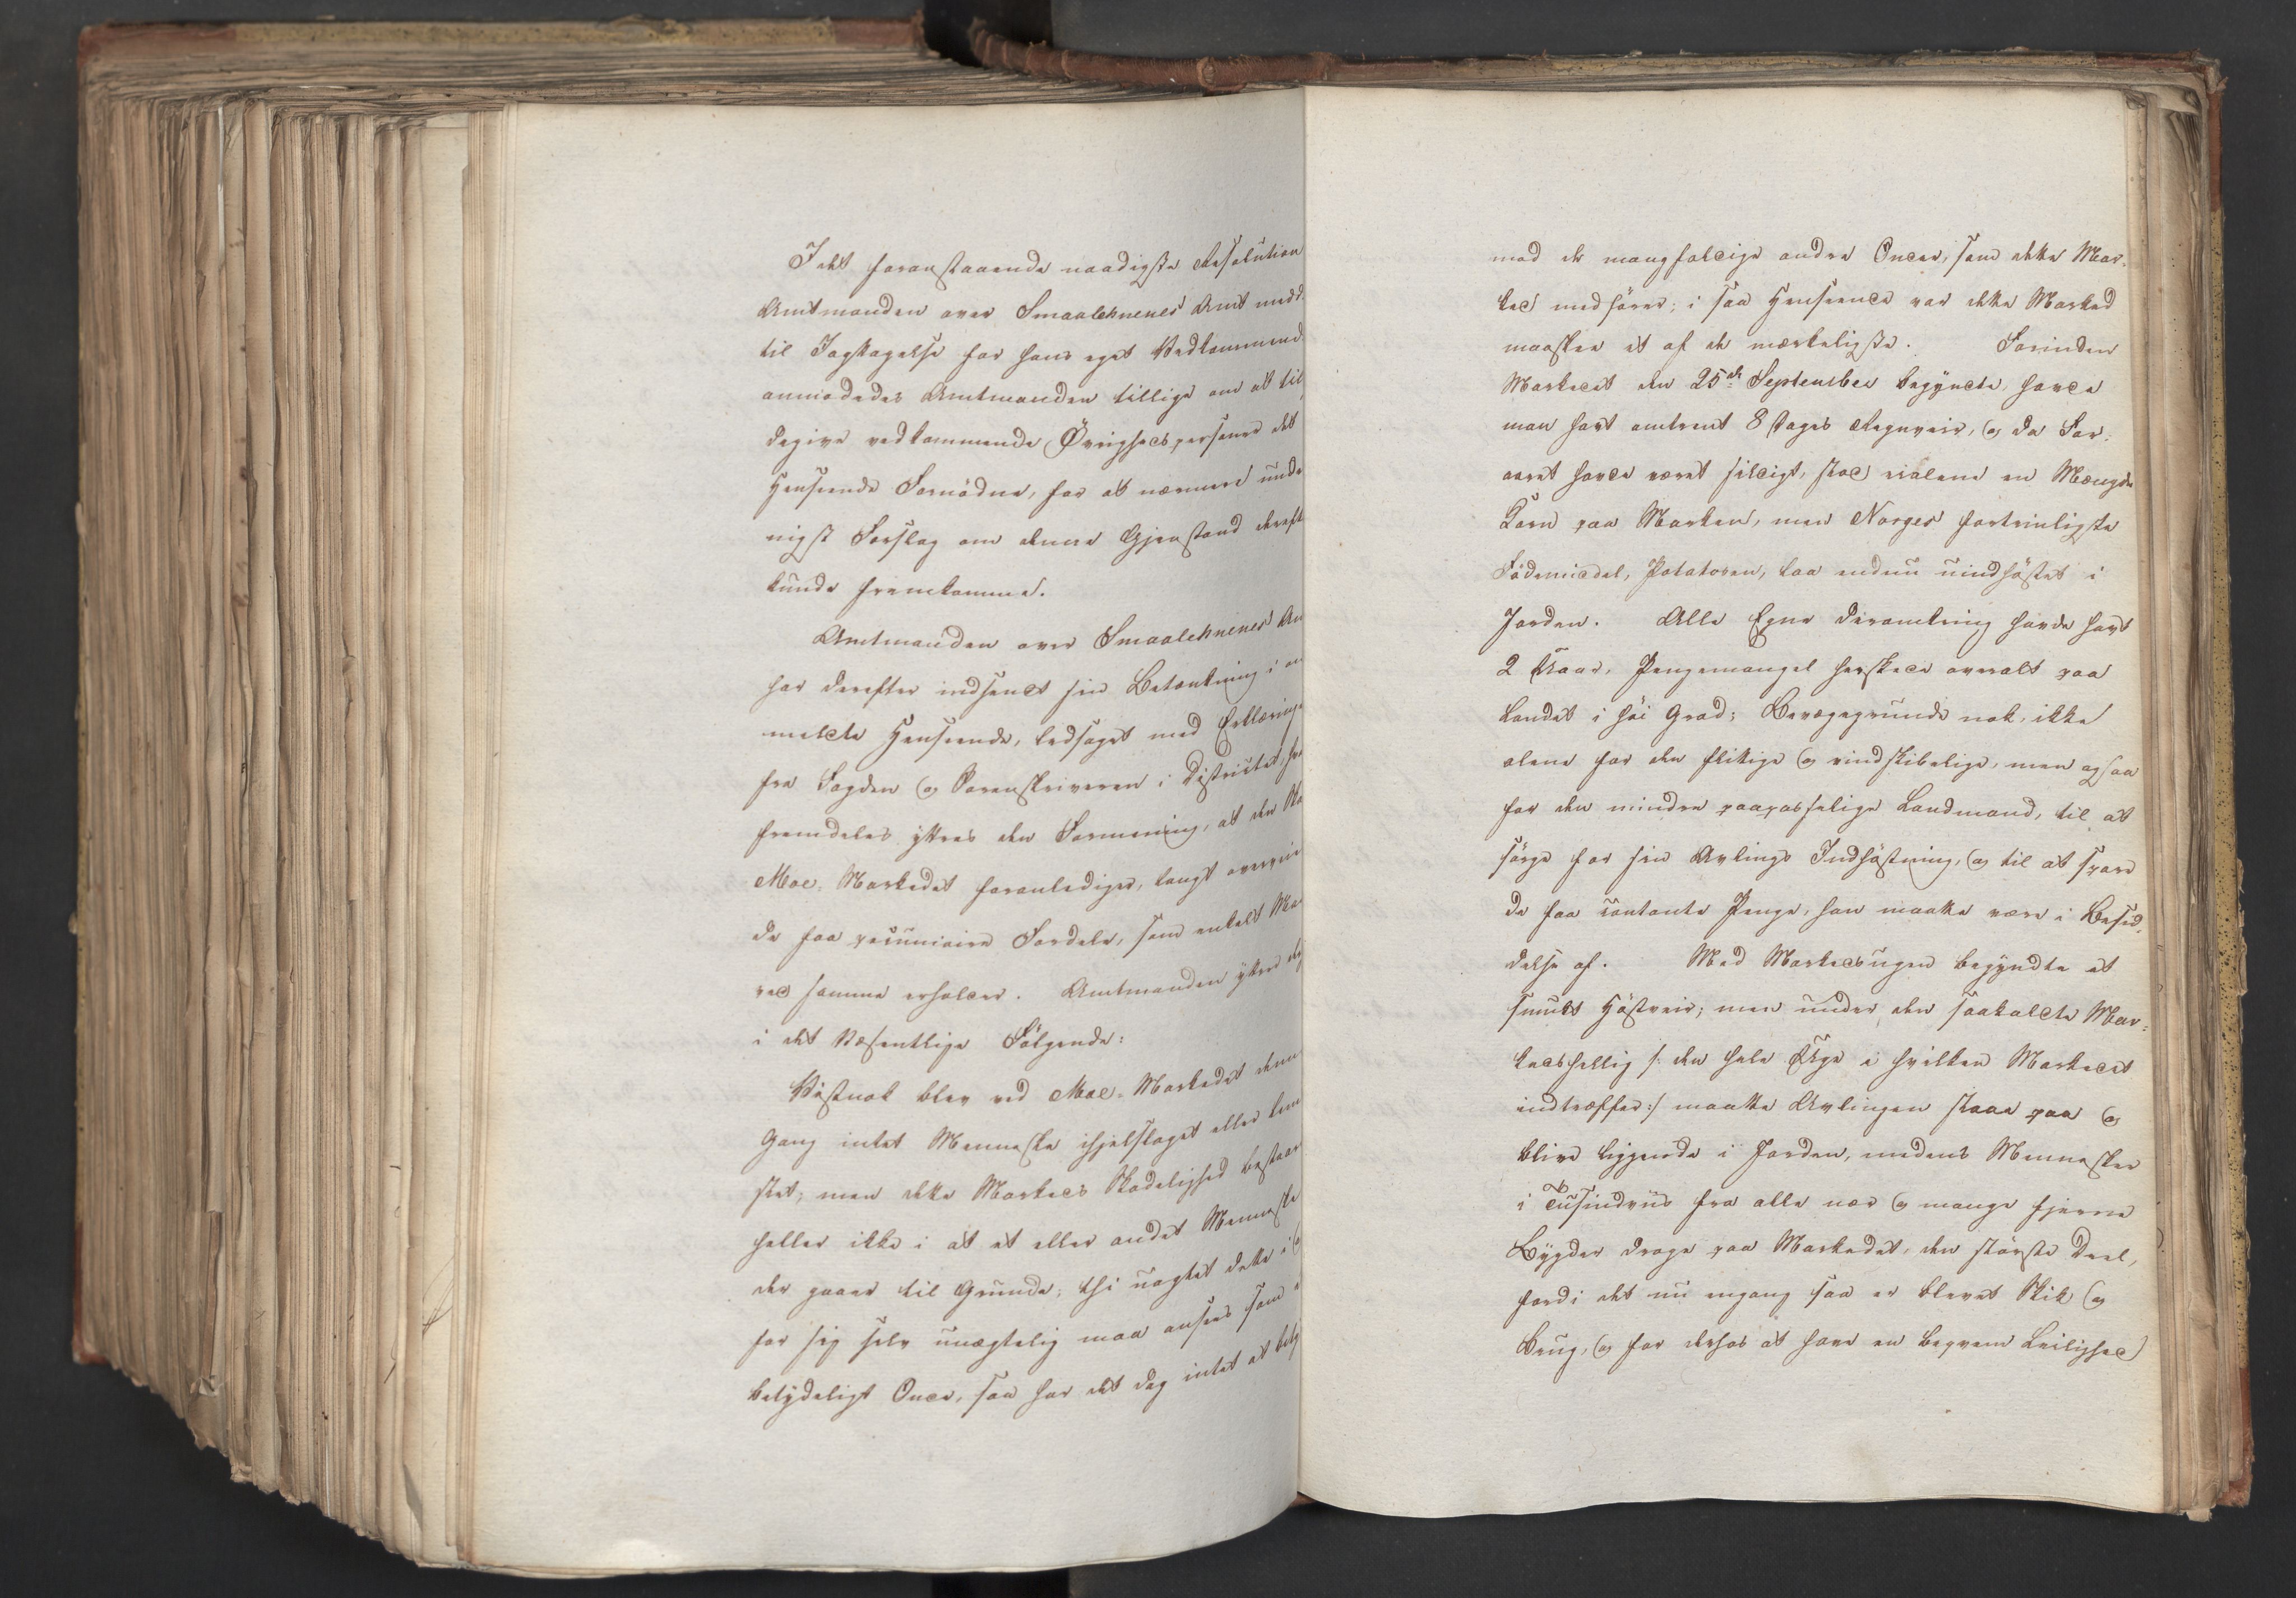 Idet foranstaaende naadigste Resolution
Amtmanden over Smaalehnenes Amt medd
til Iagttagelse for hans eget Vedkommend
anmodedes Amtmanden tillige om at til
degive vedkommende Øvrighedspersoner det
Henseende Fornödne, for at nærmere unde
nigst Forslag om denne Gjenstand dereft
kunde fremkomme.
Amtmanden over Smaalehnenes Am
har derefter indsendt sin Betænkning i an
meldte Henseende, ledsaget med Erklæringe
fra Fogden og Sorenskriveren i Districtet, hvo
fremdeles yttres den Formening, at den Ska
Moe-Markedet foranlediger, langt overvei
de faa pecuniaire Fordele, som enkelt Ma
ved samme erholder. Amtmanden yttrer dog
i det Væsentlige Fölgende:
Vistnok blev ved Moe-Markedet denne
Gang intet Menneske ihjelslaget eller lem
stet; men dette Markeds Skadelighed bestaar
heller ikke i at et eller andet Menneske
der gaaer til Grunde; thi uagtet dette i og
for sig selv unægtelig maa ansees som e
betydeligt Onde, saa har det dog intet at bety
mod de mangfoldige andre Onder, som dette Mar-
ked medförer; i saa Henseende var dette Marked
maaskee et af de mærkeligste. Forinden
Markedet den 25de September begyndte, havde
man havt omtrent 8 Dages Regnveir, og da For-
aaret havde været sildigt, stod endnu en Mængde
Korn paa Marken, men Norges fortrinligste
Födemiddel, Potatoren, laa endnu uindhöstet i
Jorden. Alle Egne deromkring havde havt
2 Uaar. Pengemangel herskede overalt paa
Landet i höi Grad; Bevæggrunde nok, ikke
alene for den flittige og vindskibelige, men ogsaa
for den mindre paapasselige Landmand, til at
sörge for sin Avlings Indhöstning, og til at spare
de faa contante Penge, han maatte være i Besid-
delse af. Med Markedsugen begyndte et
smukt Höstveir; men under den saakaldte Mar-
kedshellig /: den hele Uge i hvilken Markedet
indtræffer :/ maatte Avlingen staae paa og
blive liggende i Jorden, medens Mennesker
i Tusindviis fra alle nær og mange fjerne
Bygder drage paa Markedet, den störste Deel,
fordi det nu engang saa er blevet Skik og
Brug, og for derhos at have en beqvem Leilighed